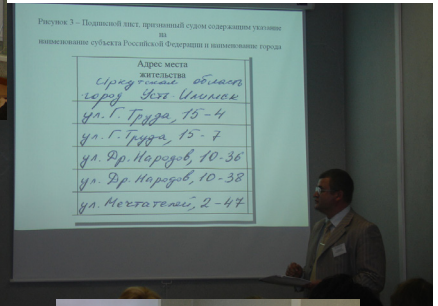 Рисунок 3 – Подписной лист, признанный судом содержащим указание
на
наименование субъекта Российской Федерации и наименование города
Адрес места
жительства
Иркутская область
город Усть-Илимск
ул. Г. Труда, 15-4
ул. Г. Труда, 15-7
ул. Др. Народов, 10-36
ул. Др. Народов, 10-38
ул. Мечтателей, 2-47